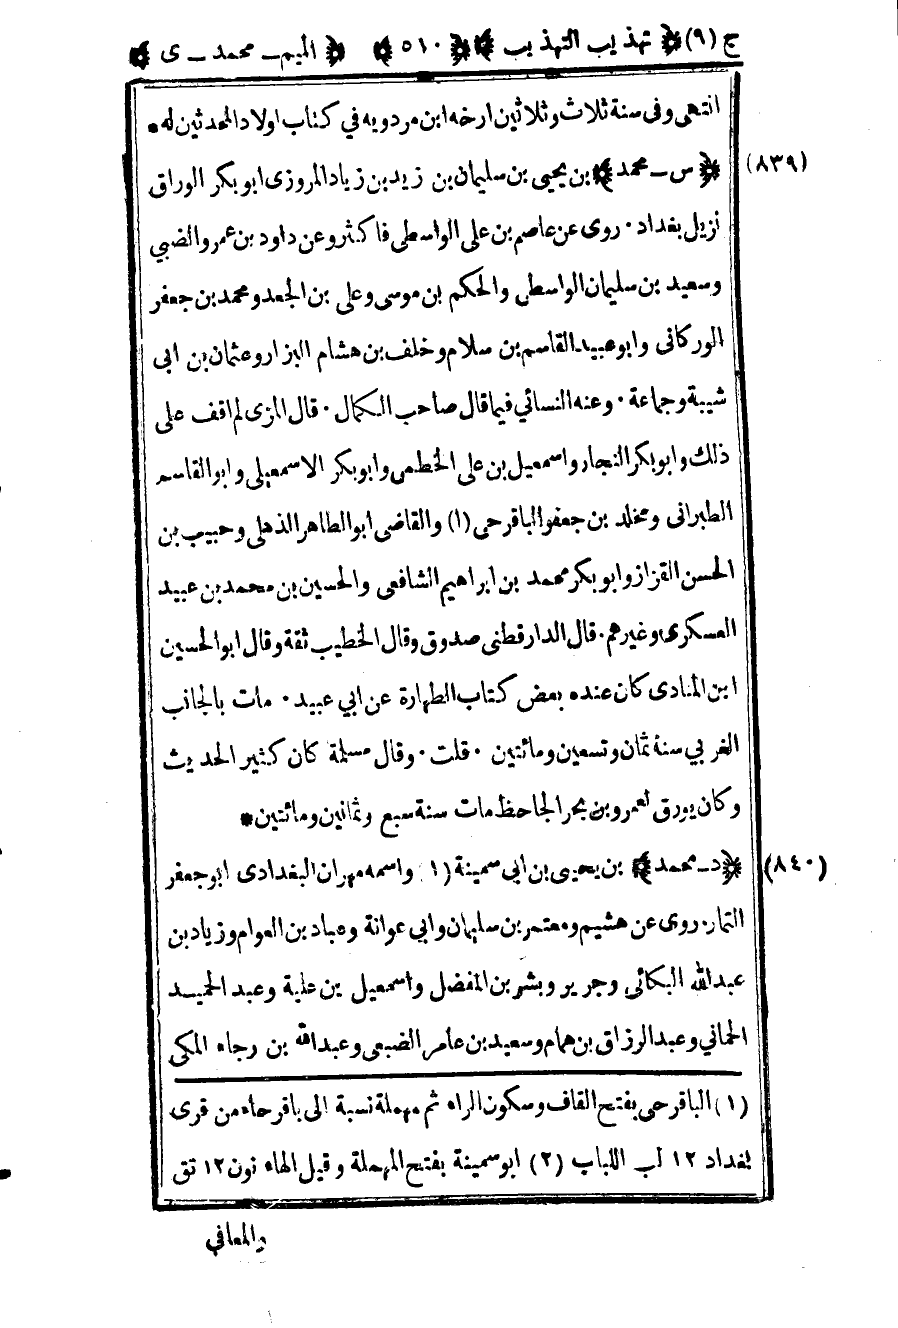 ج (٩) ﴿ تهذيب التهذيب ﴾ ﴿ ٥١٠ ﴾ ﴿ الميم ـ محمد ـ ى ﴾
انتهى وفى سنة ثلاث وثلاثين ارخه ابن مردويه في كتاب اولاد المحدثين له *
(٨٣٩) ﴿ س ـ محمد ﴾ بن يحيى بن سليمان بن زيد بن زياد المروزى ابو بكر الوراق
نزيل بغداد . روى عن عاصم بن على الواسطى فاكثر وعن داود بن عمرو الضبي
وسعيد بن سليمان الواسطى والحكم بن موسى وعلى بن الجعد ومحمد بن جعفر
الوركانى وابو عبيد القاسم بن سلام وخلف بن هشام البزار وعثمان بن ابى
شيبة وجماعة . وعنه النسائي فيما قال صاحب الكمال . قال المزى لم اقف على
ذلك وابو بكر النجاد واسمعيل بن على الخطمى وابو بكر الاسمعيلى وابو القاسم
الطبرانى ومخلد بن جعفر الباقرحى (١) والقاضى ابو الطاهر الذهلى وحبيب بن
الحسن القزاز وابو بكر محمد بن ابراهيم الشافعى والحسين بن محمد بن عبيد
العسكرى وغيرهم . قال الدار قطنى صدوق وقال الخطيب ثقة وقال ابو الحسين
ابن المنادى كان عنده بعض كتاب الطهارة عن ابي عبيد . مات بالجانب
الغربي سنة ثمان وتسعين ومائتين . قلت . وقال مسلمة كان كثير الحديث
وكان يورق لعمرو بن بحر الجاحظ مات سنة سبع وثمانين ومائتين *
(٨٤٠) ﴿ د ـ محمد ﴾ بن يحيى بن ابى سمينة (١) واسمه مهران البغدادى ابو جعفر
التمار . روى عن هشيم ومعتمر بن سليمان وابي عوانة وعباد بن العوام وزياد بن
عبد الله البكائى وجرير وبشر بن المفضل واسمعيل بن علية وعبد الحميد
الحماني وعبد الرزاق بن همام وسعيد بن عامر الضبعى وعبد الله بن رجاء المكى
(١) الباقرحى بفتح القاف وسكون الراء ثم مهملة نسبة الى باقرحاء من قرى
بغداد ١٢ لب اللباب (٢) ابو سمينة بفتح المهملة وقبل الهاء نون ١٢ تق
والمعافي